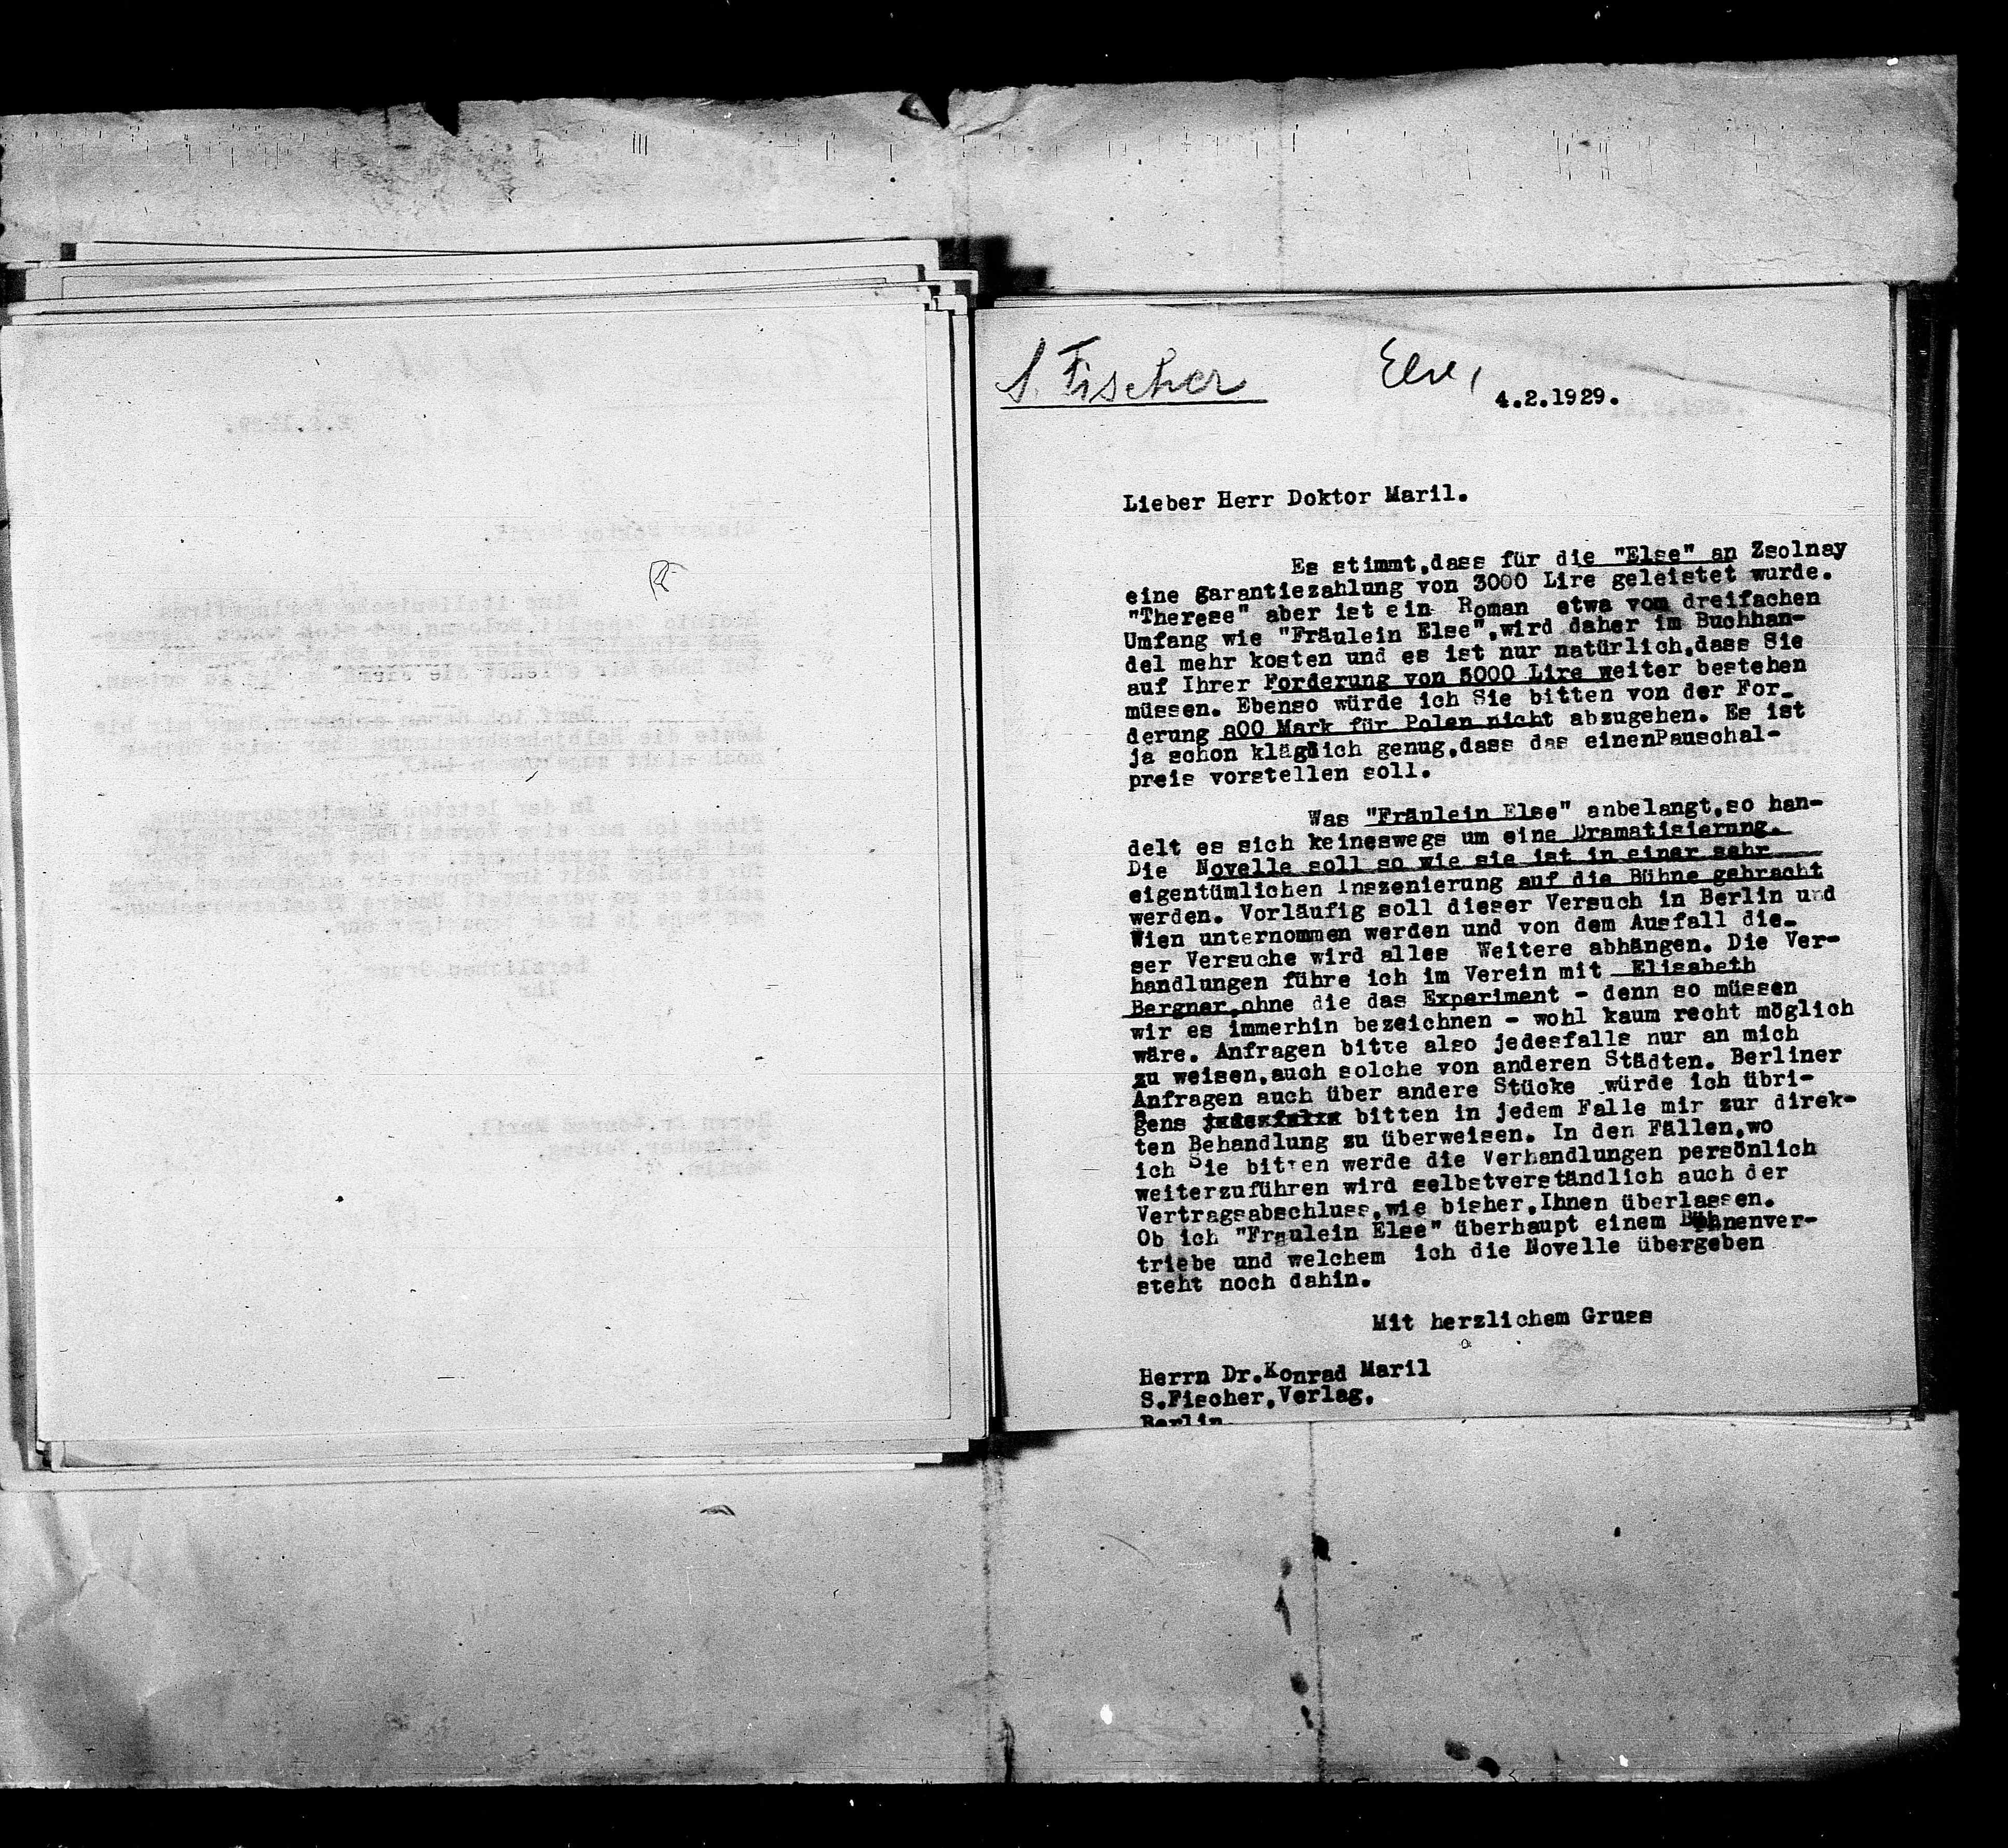 S. Fischer
Else,
4.2.1929.
Lieber Herr Doktor Maril.
Es stimmt,dass für die "Else" an Zsolnay
eine garantiezahlung von 3000 Lire geleistet wurde.
"Therese" aber ist ein Roman etwa vom dreifachen
Umfang wie "Fräulein Else",wird daher im Buchhan-
del mehr kosten und es ist nur natürlich,dass Sie
auf Ihrer Forderung von 5000 Lire weiter bestehen
müssen. Ebenso würde ich Sie bitten von der For-
derung 800 Mark für Polen nicht abzugehen. Es ist
ja schon kläglich genug,dass das einenPauschal-
preis vorstellen soll.
Was "Fräulein Else" anbelangt,so han-
delt es sich keineswegs um eine Dramatisierung.
Die Novelle soll so wie sie ist in einer sehr
eigentümlichen Inszenierung auf die Bühne gebracht
werden. Vorläufig soll dieser Versuch in Berlin und
Wien unternommen werden und von dem Ausfall die-
ser Versuche wird alles Weitere abhängen. Die Ver-
handlungen führe ich im Verein mit Elisabeth
Bergner,ohne die das Experiment - denn so müssen
wir es immerhin bezeichnen - wohl kaum recht möglich
wäre. Anfragen bitte also jedesfalls nur an mich
zu weisen,auch solche von anderen Städten. Berliner
Anfragen auch über andere Stücke würde ich übri-
gens jedesfalls bitten in jedem Falle mir zur direk-
ten Behandlung zu überweisen. In den Fällen,wo
ich Sie bitten werde die Verhandlungen persönlich
weiterzuführen wird selbstverständlich auch der
Vertragsabschluss,wie bisher,Ihnen überlassen.
Ob ich "Fraulein Else" überhaupt einem Bühnenver-
triebe und welchem ich die Novelle übergeben
steht noch dahin.
Mit herzlichem Gruss
Herrn Dr.Konrad Maril
S.Fischer,Verlag,
Berlin.